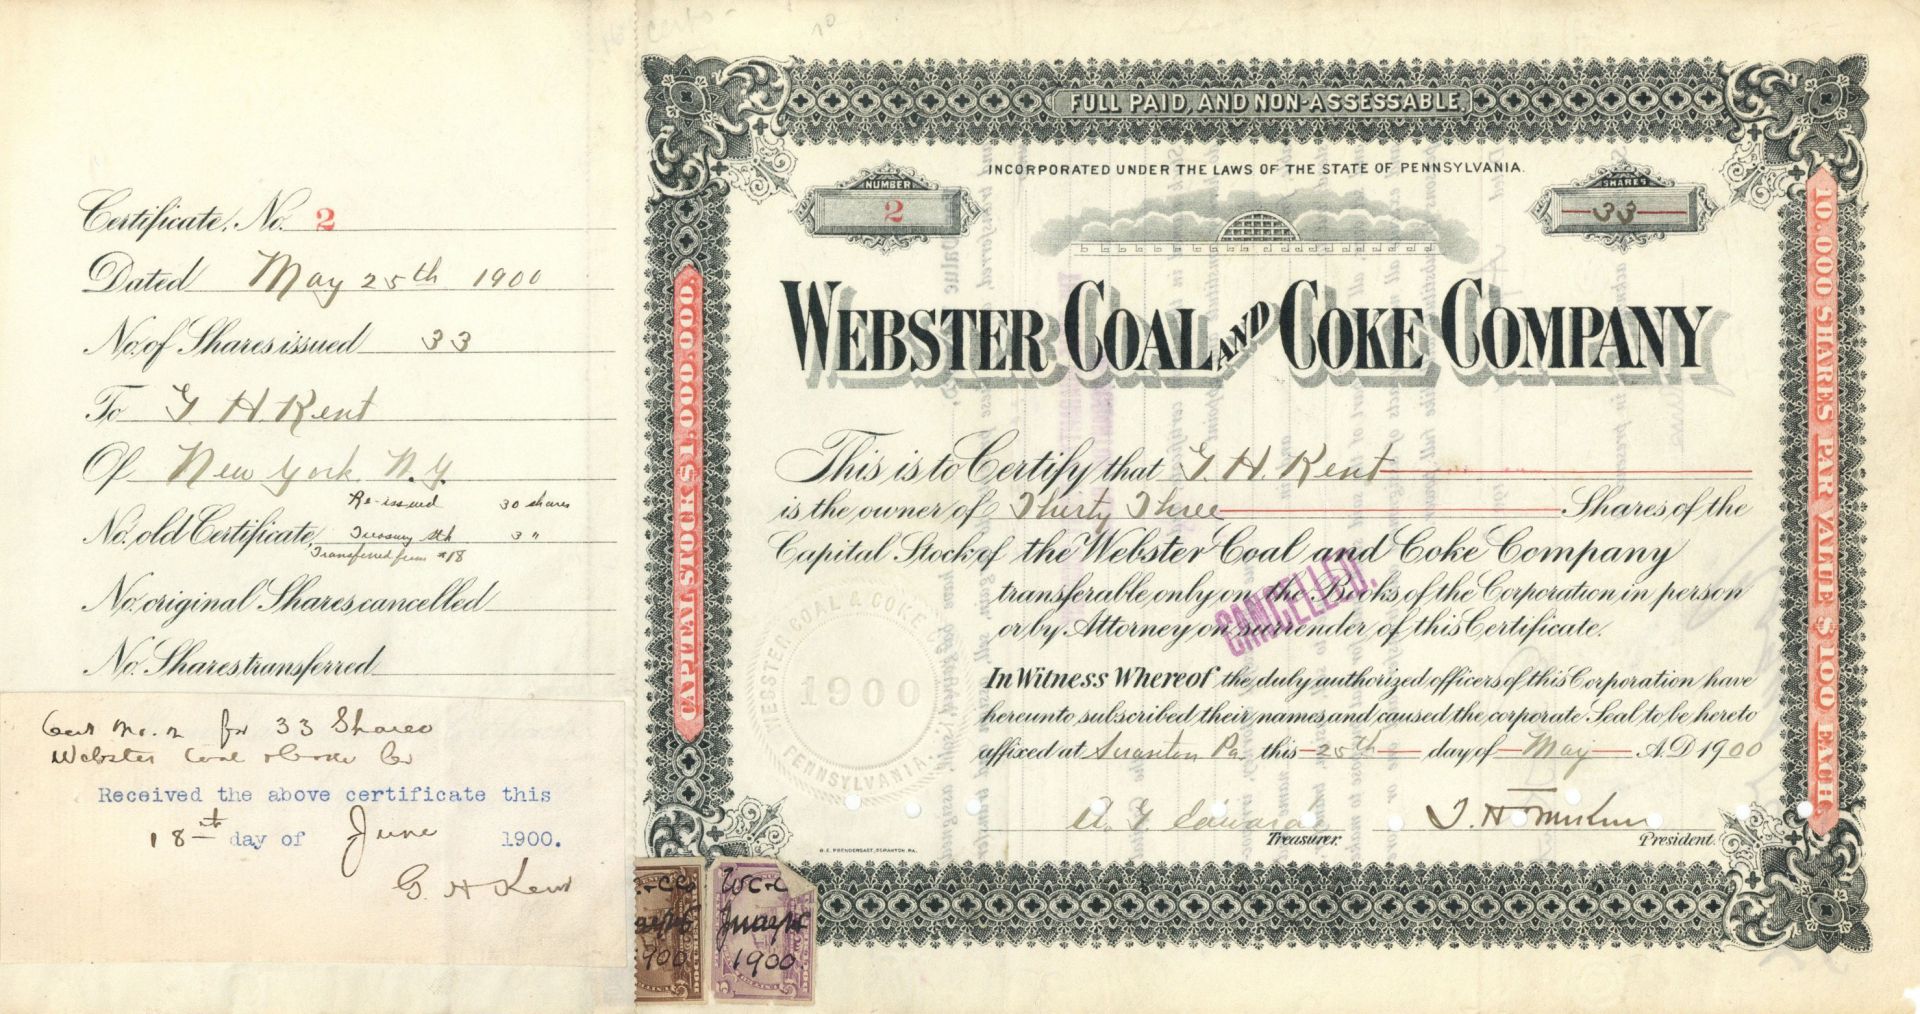 Certificate, No. 2
Dated May 25th 1900
No. of Shares issued 33
To G H. Kent
Of New York N.Y.
Re-issued 30 shares
No. old Certificate, Treasury stk 3 "
Transferred from #18
No. original Shares cancelled
No. Shares transferred
Cert No. 2 for 33 Shares
Webster Coal & Coke Co
Received the above certificate this
18th day of June 1900.
G. H Kent
FULL PAID, AND NON-ASSESSABLE.
INCORPORATED UNDER THE LAWS OF THE STATE OF PENNSYLVANIA.
NUMBER
2
SHARES
33
WEBSTER COAL AND COKE COMPANY
CAPITAL STOCK $1,000,000.
10,000 SHARES PAR VALUE $100 EACH.
This is to Certify that G. H. Kent
is the owner of Thirty Three Shares of the
Capital Stock of the Webster Coal and Coke Company
transferable only on the Books of the Corporation in person
or by Attorney on surrender of this Certificate.
CANCELLED.
In Witness Whereof the duly authorized officers of this Corporation have
hereunto subscribed their names and caused the corporate Seal to be hereto
affixed at Scranton Pa. this 25th day of May A.D 1900
WEBSTER COAL & COKE CO.
1900
PENNSYLVANIA.
A. G Edwards
Treasurer.
President.
G. E. PRENDERGAST, SCRANTON, PA.
W C & C
1900.
1900